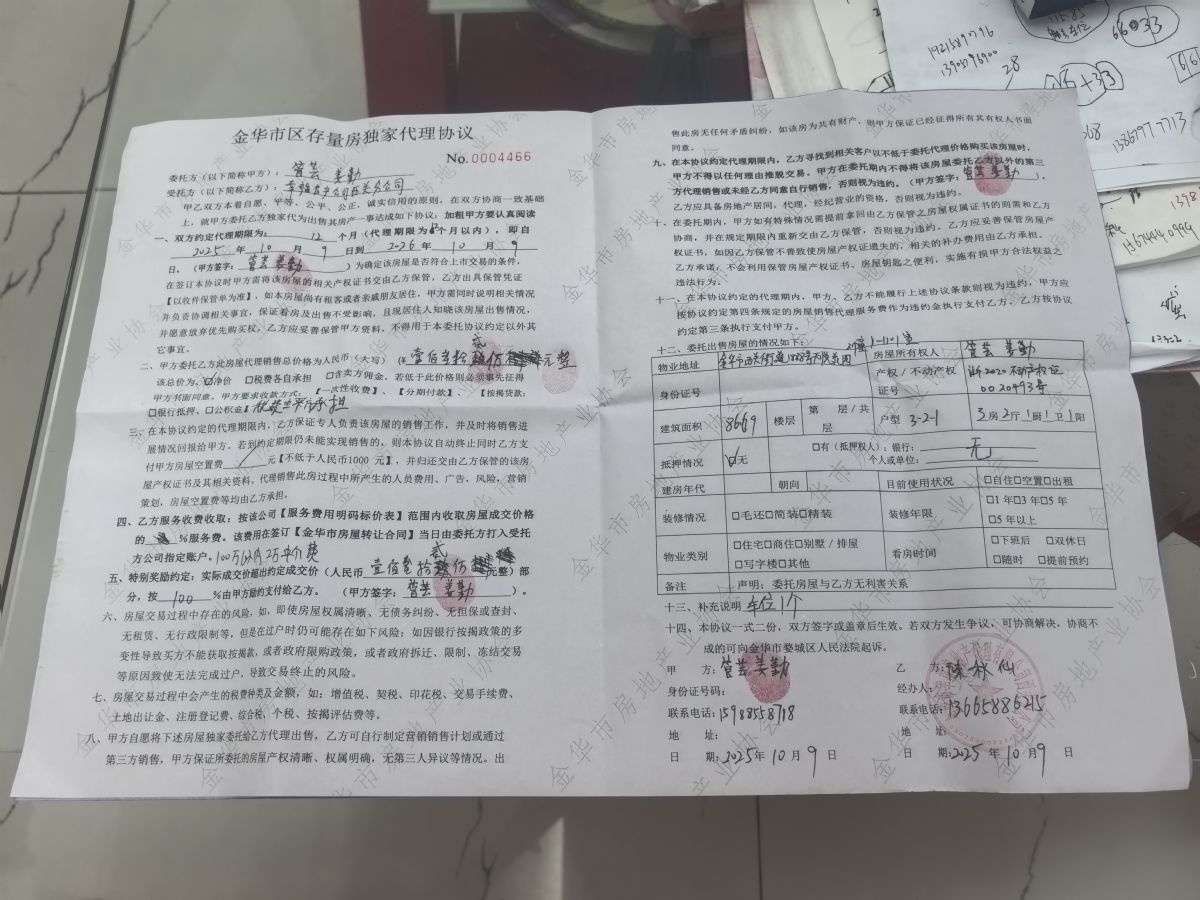 金华市区存量房独家代理协议
No.0004466
委托方（以下简称甲方）：管芸 姜勤
受托方（以下简称乙方）：
甲乙双方本着自愿、平等、公平、公正，诚实信用的原则，在双方协商一致基础
上，就甲方委托乙方独家代为出售其房产一事达成如下协议：加粗甲方要认真阅读
一、双方约定代理期限为： 12 个月（代理期限为 个月以内），即自
2025年 10 月 9 日到 2026 年 10 月 9
日。（甲方签字：管芸 姜勤）为确定该房屋是否符合上市交易的条件，
在签订本协议时甲方需将该房屋的相关产权证书交由乙方保管，乙方出具保管凭证
【以收件保管单为准】，如本房屋尚有租客或者亲戚朋友居住，甲方需同时说明相关情况
并负责协调相关事宜，保证看房及出售不受影响，且现居住人知晓该房屋出售情况，
并愿意放弃优先购买权，乙方应妥善保管甲方资料，不得用于本委托协议约定以外其
它事宜。
二、甲方委托乙方此房屋代理销售总价格为人民币（大写）（¥ 壹佰叁拾贰 元整
该总价为：☑净价 □税费各自承担 □含卖方佣金。若低于此价格则必须事先征得
甲方书面同意。甲方要求收款方式：【一次性收费】、【分期付款】、【按揭贷款：
□银行抵押、□公积金】 承担
三、在本协议约定的代理期限内，乙方保证专人负责该房屋的销售工作，并及时将销售进
展情况回报给甲方。若到约定期限仍未能实现销售的，则本协议自动终止同时乙方支
付甲方房屋空置费 / 元【不低于人民币1000 元】，并归还交由乙方保管的该房
屋产权证书及其相关资料。代理销售此房过程中所产生的人员费用、广告，风险，营销
策划，房屋空置费等均由乙方承担。
四、乙方服务收费收取：按该公司【服务费用明码标价表】范围内收取房屋成交价格
的 %服务费。该费用在签订【金华市房屋转让合同】当日由委托方打入受托
方公司指定账户。
五、特别奖励约定：实际成交价超出约定成交价（人民币 壹佰叁拾贰 元整）部
分，按 100 %由甲方励约支付给乙方。 （甲方签字：管芸 姜勤）。
六、房屋交易过程中存在的风险，如，即使房屋权属清晰、无债务纠纷、无担保或查封、
无租赁、无行政限制等，但是在过户时仍可能存在如下风险：如因银行按揭政策的多
变性导致买方不能获取按揭款，或者政府限购政策，或者政府拆迁、限制、冻结交易
等原因致使无法完成过户，导致交易终止的风险。
七、房屋交易过程中会产生的税费种类及金额，如：增值税、契税、印花税、交易手续费、
土地出让金、注册登记费、综合税，个税、按揭评估费等。
八、甲方自愿将下述房屋独家委托给乙方代理出售，乙方可自行制定营销销售计划或通过
第三方销售，甲方保证所委托的房屋产权清晰、权属明确，无第三人异议等情况。出
售此房无任何矛盾纠纷，如该房为共有财产，则甲方保证已经征得所有其有权人书面
同意。
九、在本协议约定代理期限内，乙方寻找到相关客户以不低于委托代理价格购买该房屋时，
甲方不得以任何理由推脱交易。甲方在委托期内不得将该房屋委托乙方以外的第三
方代理销售或未经乙方同意自行销售，否则视为违约。（甲方签字：管芸 姜勤），
乙方应具备房地产居间，代理，经纪营业的资格，否则视为违约。
十、在委托期内，甲方如有特殊情况需提前拿回由乙方保管之房屋权属证书的则需和乙方
协商，并在规定期限内重新交由乙方保管，否则视为违约，乙方应妥善保管房屋产
权证书，如因乙方保管不善致使房屋产权证遗失的，相关的补办费用由乙方承担。
乙方承诺：不会利用保管房屋产权证书、房屋钥匙之便利，实施有损甲方合法权益之
违法行为。
十一、在本协议约定的代理期内，甲方、乙方不能履行上述协议条款则视为违约，甲方应
按协议约定第四条规定的房屋销售代理服务费作为违约金执行支付乙方，乙方按协议
约定第三条执行支付甲方。
十二、乙方出售房屋的情况如下：
物业地址 房屋所有权人 管芸 姜勤
身份证号 产权／不动产权证号 浙2020 不动产权证 0020493号
建筑面积 86.69 楼层 第 层／共 层 户型 3-2-1 3房2厅1厨1卫1阳
抵押情况 ☑无 □有（抵押权人）：银行： 个人或单位： 无
建房年代 朝向 目前使用状况 □自住□空置□出租
装修情况 □毛还□简装□精装 装修年限 □1年□3年□5年 □5年以上
物业类别 □住宅□商住□别墅／排屋 □写字楼□其他 看房时间 □下班后 □双休日 □随时 □提前预约
备注 声明：委托房屋与乙方无利害关系
十三、补充说明 车位1个
十四、本协议一式二份，双方签字或盖章后生效。若双方发生争议，可协商解决，协商不
成的可向金华市婺城区人民法院起诉。
甲 方：管芸 姜勤 乙 方：陈林仙
身份证号码： 经办人：
联系电话：15988558718 联系电话：13665886215
地 址： 地 址：
日 期：2025年 10 月 9 日 日 期：2025年 10 月 9 日